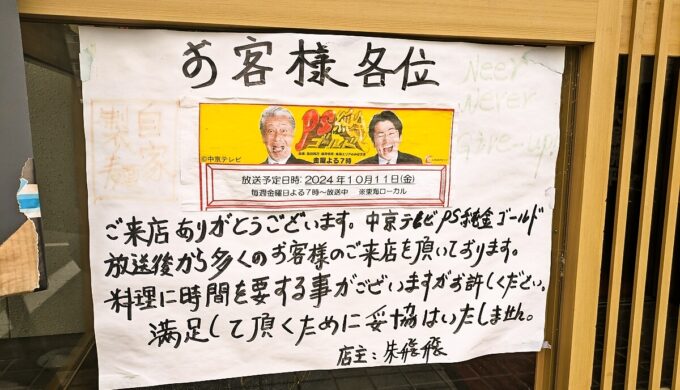 お客様各位
自家
製麺
Never
Never
Give up
PS純金
ゴールド
金曜よる7時
©中京テレビ
放送予定日時: 2024年10月11日(金)
毎週金曜日よる7時〜放送中 ※東海ローカル
ご来店ありがとうございます。中京テレビPS純金ゴールド
放送後から多くのお客様のご来店を頂いております。
料理に時間を要する事がございますがお許しください。
満足して頂くために妥協はいたしません。
店主:朱